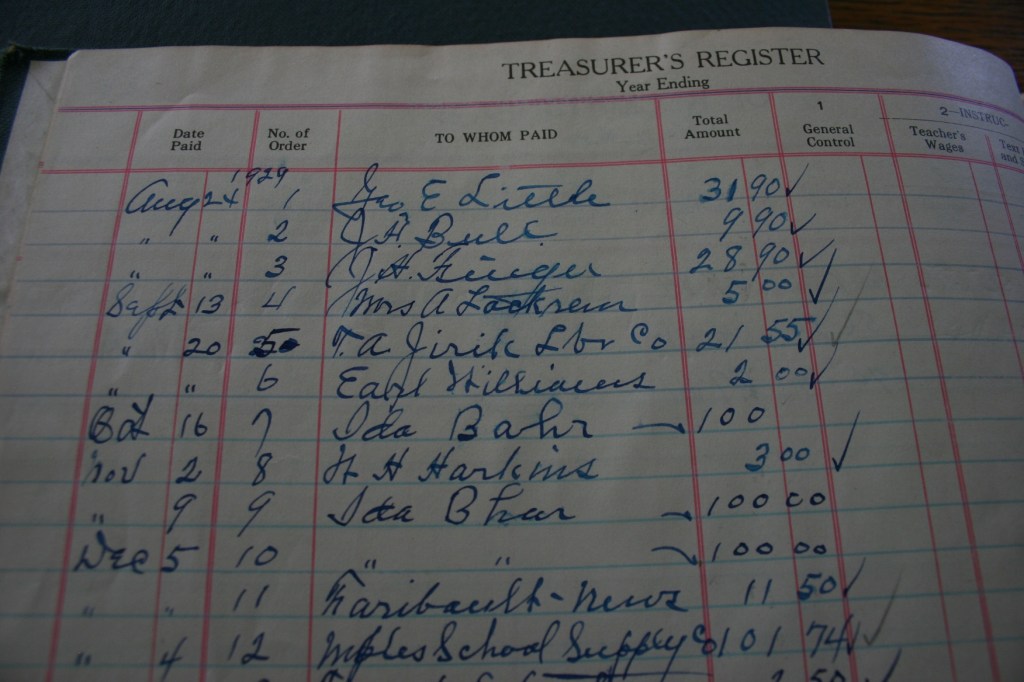 TREASURER'S REGISTER
Year Ending
Date Paid No. of Order TO WHOM PAID Total Amount 1 General Control 2—INSTRUC- Teacher's Wages Text
1929
Aug 24 1 Geo E Little 31 90 ✓
" " 2 J H. Bull. 9 90 ✓
" " 3 J H. 28 90 ✓
Sept 13 4 Mrs A Lockrem 5 00 ✓
" 20 5 T. A. Jirik Lbr Co 21 55 ✓
" " 6 Earl Williams 2 00 ✓
Oct 16 7 Ida Bahr 100
Nov 2 8 H H Harkins 3 00 ✓
" 9 9 Ida Bhar 100 00
Dec 5 10 " " 100 00
" " 11 Faribault - News 11 50 ✓
" 4 12 Mples School Supply Co 101 74 ✓
50 ✓